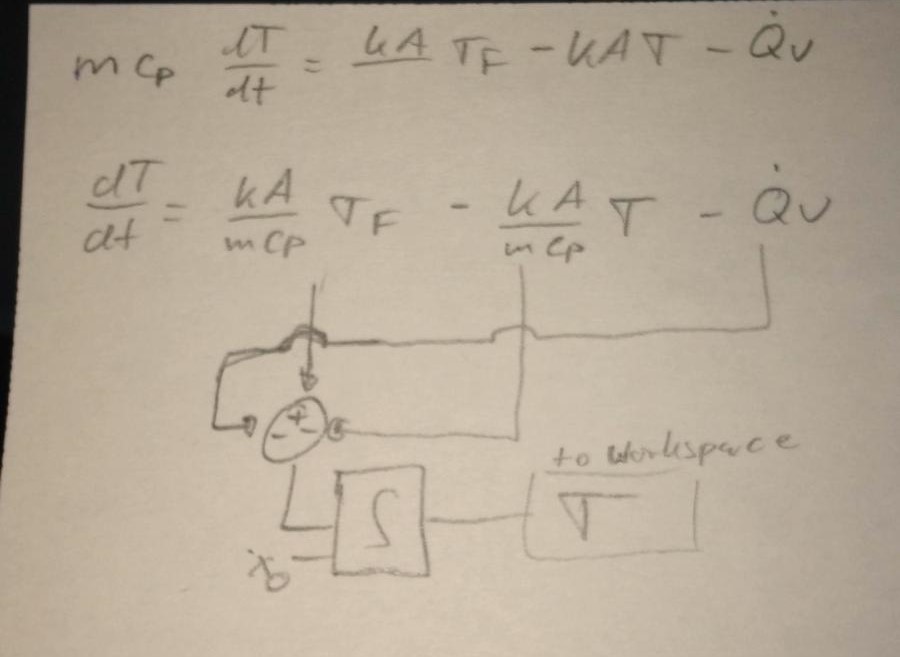 m cp dT/dt = kA TF - kA T - Q̇v
dT/dt = kA/m cp TF - kA/m cp T - Q̇v
+
- -
to workspace
∫ T